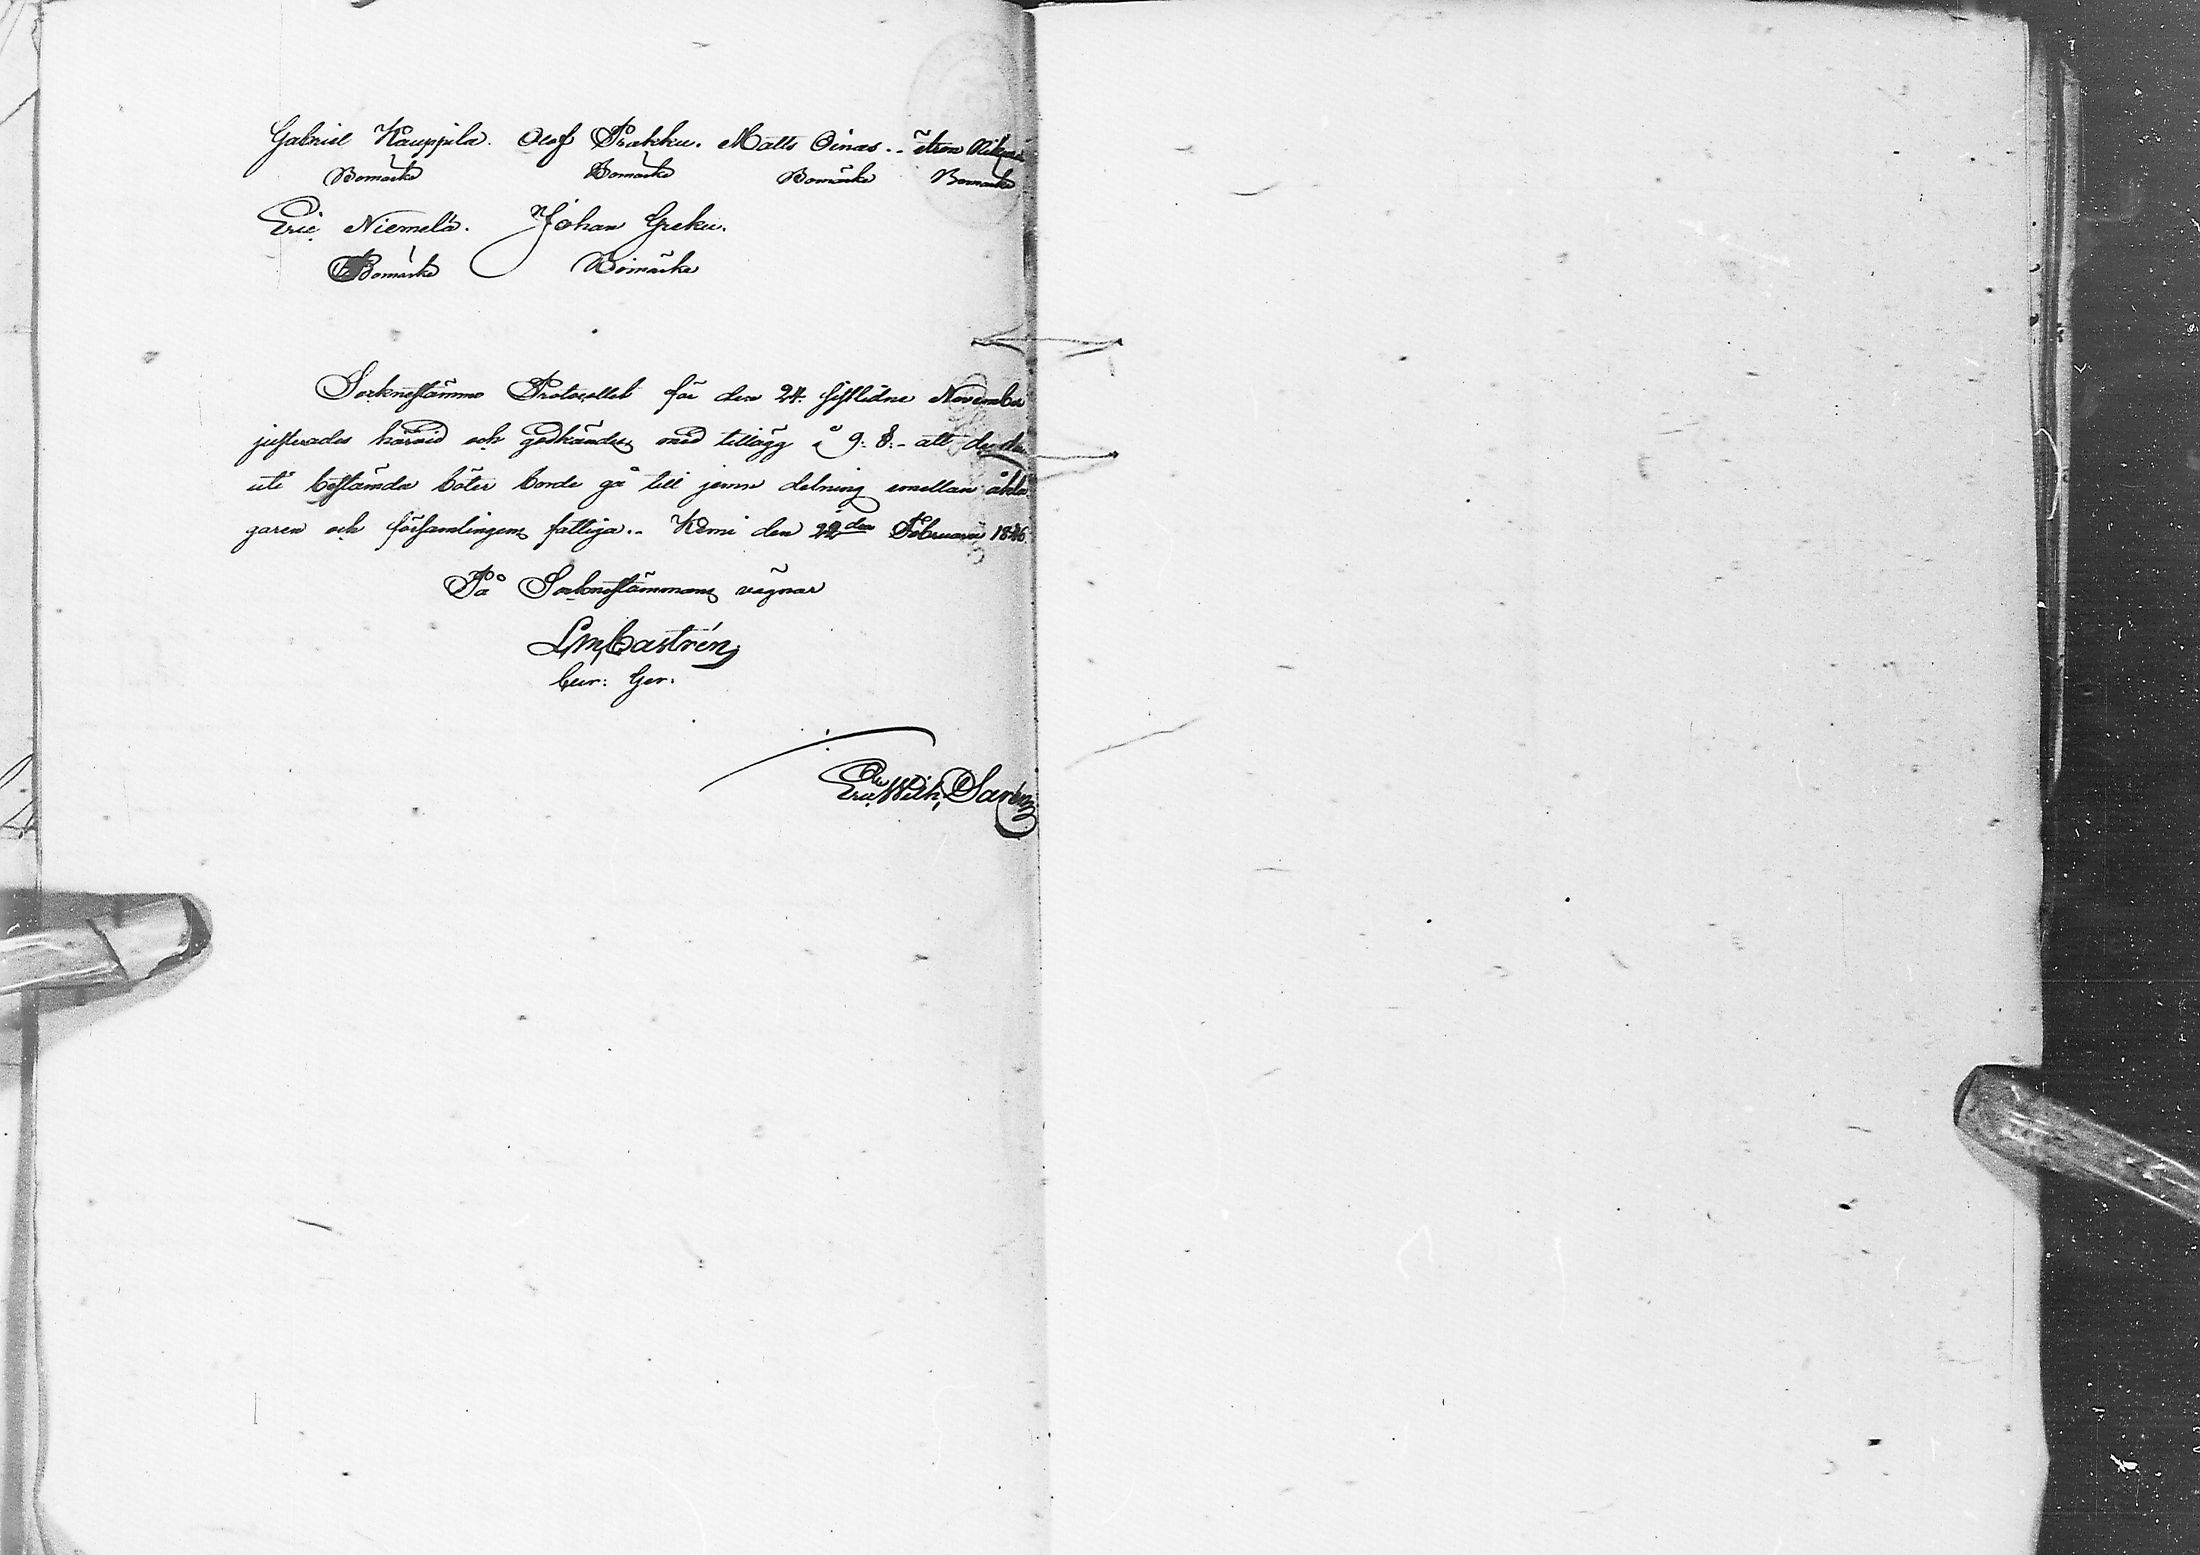 Gabriel Kauppila. Olof Prakku. Matts Oinas.
Bomärke Bomärke Bomärke Bomärke
Eric Niemelä. Johan Greku.
Bomärke Bomärke
Sockneståmmo Protocollet för den 24. sistlidne November
justerades härvid och godkändes med tillägg i 9. §.- att de der
uti bestämda böter borde gå till jemn delning emellan åkla
garen och församlingens fattiga.- Kemi den 22den Februarii 1846.
På Sockneståmmans vägnar
Castrén
Cur: Ger.
Wilh, Sarén